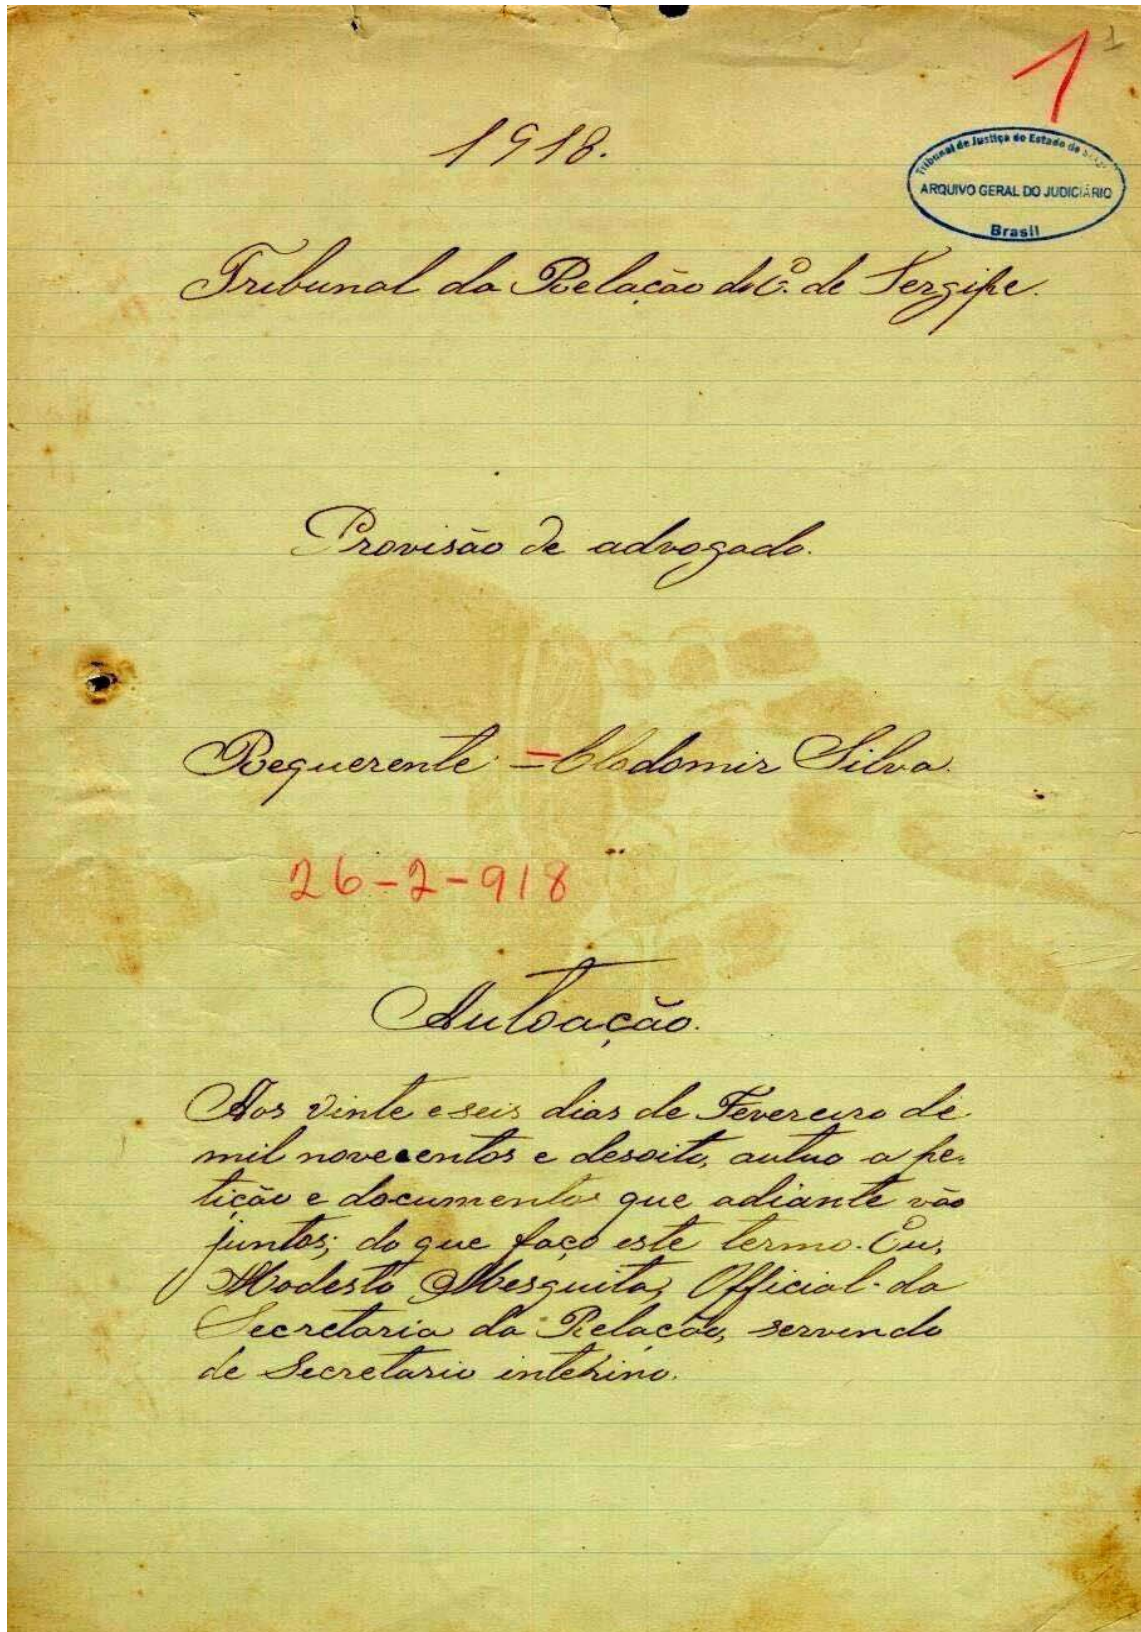 1
1
1918.
Tribunal de Justiça do Estado de
ARQUIVO GERAL DO JUDICIÁRIO
Brasil
Tribunal da Relação do E. de Sergipe.
Provisão de advogado.
Requerente = Clodomir Silva.
26-2-918
Autoação.
Aos vinte e seis dias de Fevereiro de
mil novecentos e desoito, autuo a pe-
tição e documentos que adiante vão
juntos; do que faço este termo. Eu,
Modesto Mesquita, Official da
Secretaria da Relação, servindo
de Secretario interino.